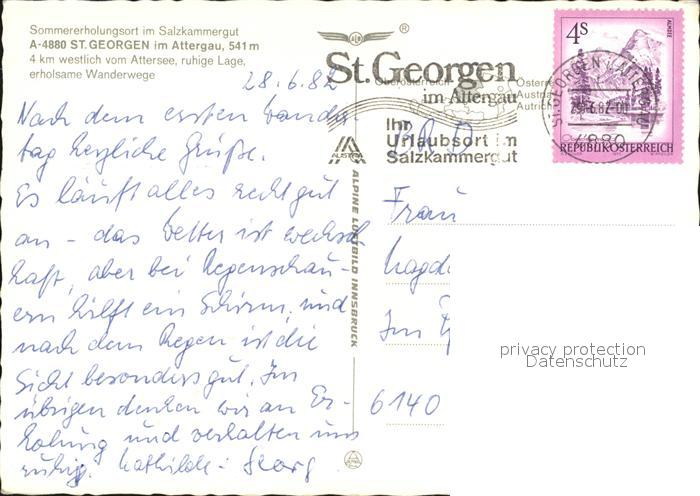 Sommererholungsort im Salzkammergut
A-4880 ST. GEORGEN im Attergau, 541 m
4 km westlich vom Attersee, ruhige Lage,
erholsame Wanderwege
28.6.82
Nach dem ersten Wander-
tag herzliche Grüße.
Es läuft alles recht gut
an - das Wetter ist wechsel-
haft, aber bei Regenschau-
ern hilft ein Schirm, und
nach dem Regen ist die
Sicht besonders gut. Im
übrigen denken wir an Er-
holung und verhalten uns
ruhig. Mathilde - Georg
ALPINE LUFTBILD INNSBRUCK
AUSTRIA
®
St. Georgen
im Attergau
Ihr
Urlaubsort im
Salzkammergut
Österreich
Austria
Autriche
4S
ALMSEE
REPUBLIK ÖSTERREICH
ST. GEORGEN I. ATTERGAU
4880
Frau
Magd
Im
6140
privacy protection
Datenschutz